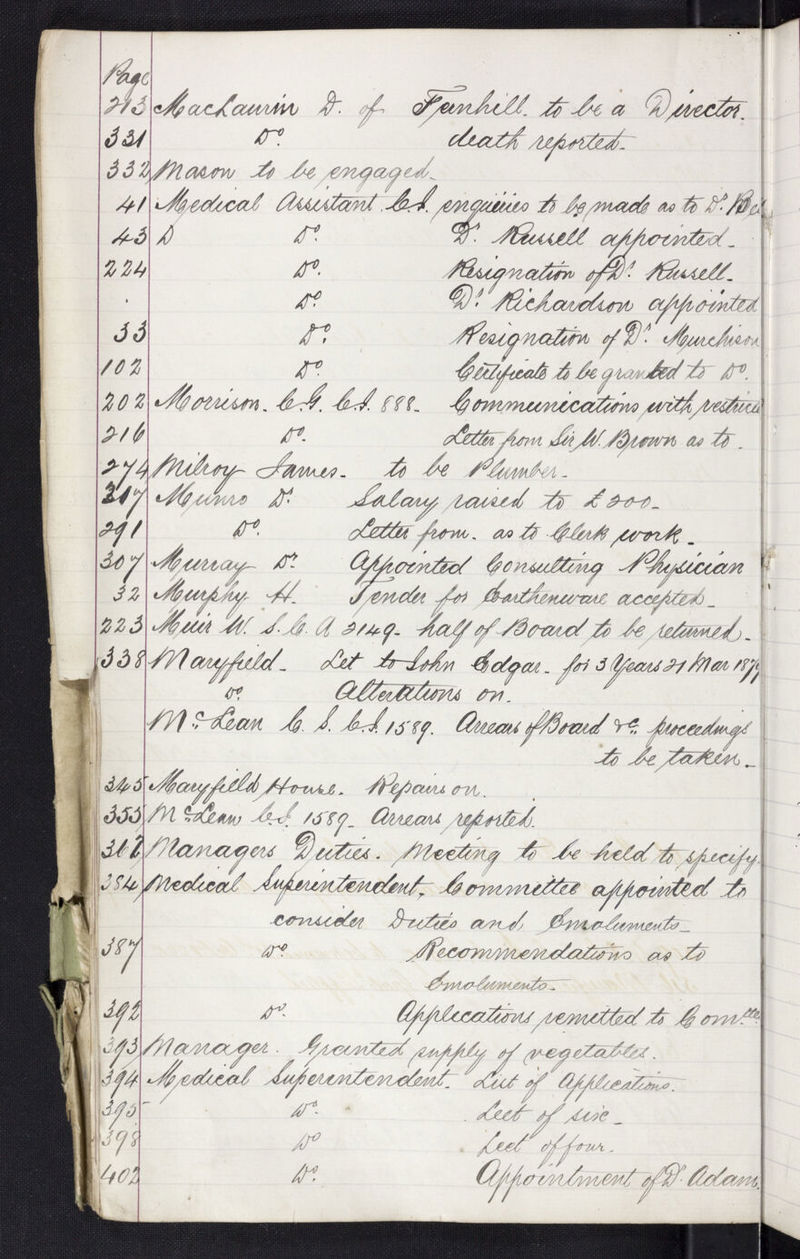 Page
213 MacLaurin D. of Funhill. to be a Director.
331 Do. death reported.
332 Mason to be engaged.
41 Medical Assistant C.I. enquiries to be made as to Dr.
43 D Do. Dr. Russell appointed.
224 Do. Resignation of Dr. Russell.
Do. Dr. Richardson appointed
33 Do. Resignation of Dr. Murchison
102 Do. Certificate to be granted to Do.
202 Morrison. C.G. C.I. 888. Communications with
216 Do. Letter from Sir W. Brown as to.
274 Milroy James. to be Plumber.
317 Munro Dr. Salary raised to £200.
291 Do. Letter from. as to Clerk work.
307 Murray Dr. Appointed Consulting Physician
32 Murphy H. Tender for Earthenware accepted.
223 Muir W. S. C. A 2149. half of Board to be returned.
338 Maryfield. Let to John Edgar. for 3 Years 21 Mar 1879
Do. Alterations on.
McLean C. S. C.I. 1589. Arrears of Board &c. proceedings
to be taken.
345 Maryfield House. Repairs on.
355 McLean C.I. 1589. Arrears reported.
Managers Duties. Meeting to be held to specify.
384 Medical Superintendent. Committee appointed to
consider Duties and Emoluments.
387 Do. Recommendations as to
Emoluments.
392 Do. Applications remitted to Comttee.
393 Manager. Granted supply of vegetables.
394 Medical Superintendent. List of Applications.
395 Do. Leet of six.
398 Do Leet of four.
402 Do. Appointment of Dr. Adam.